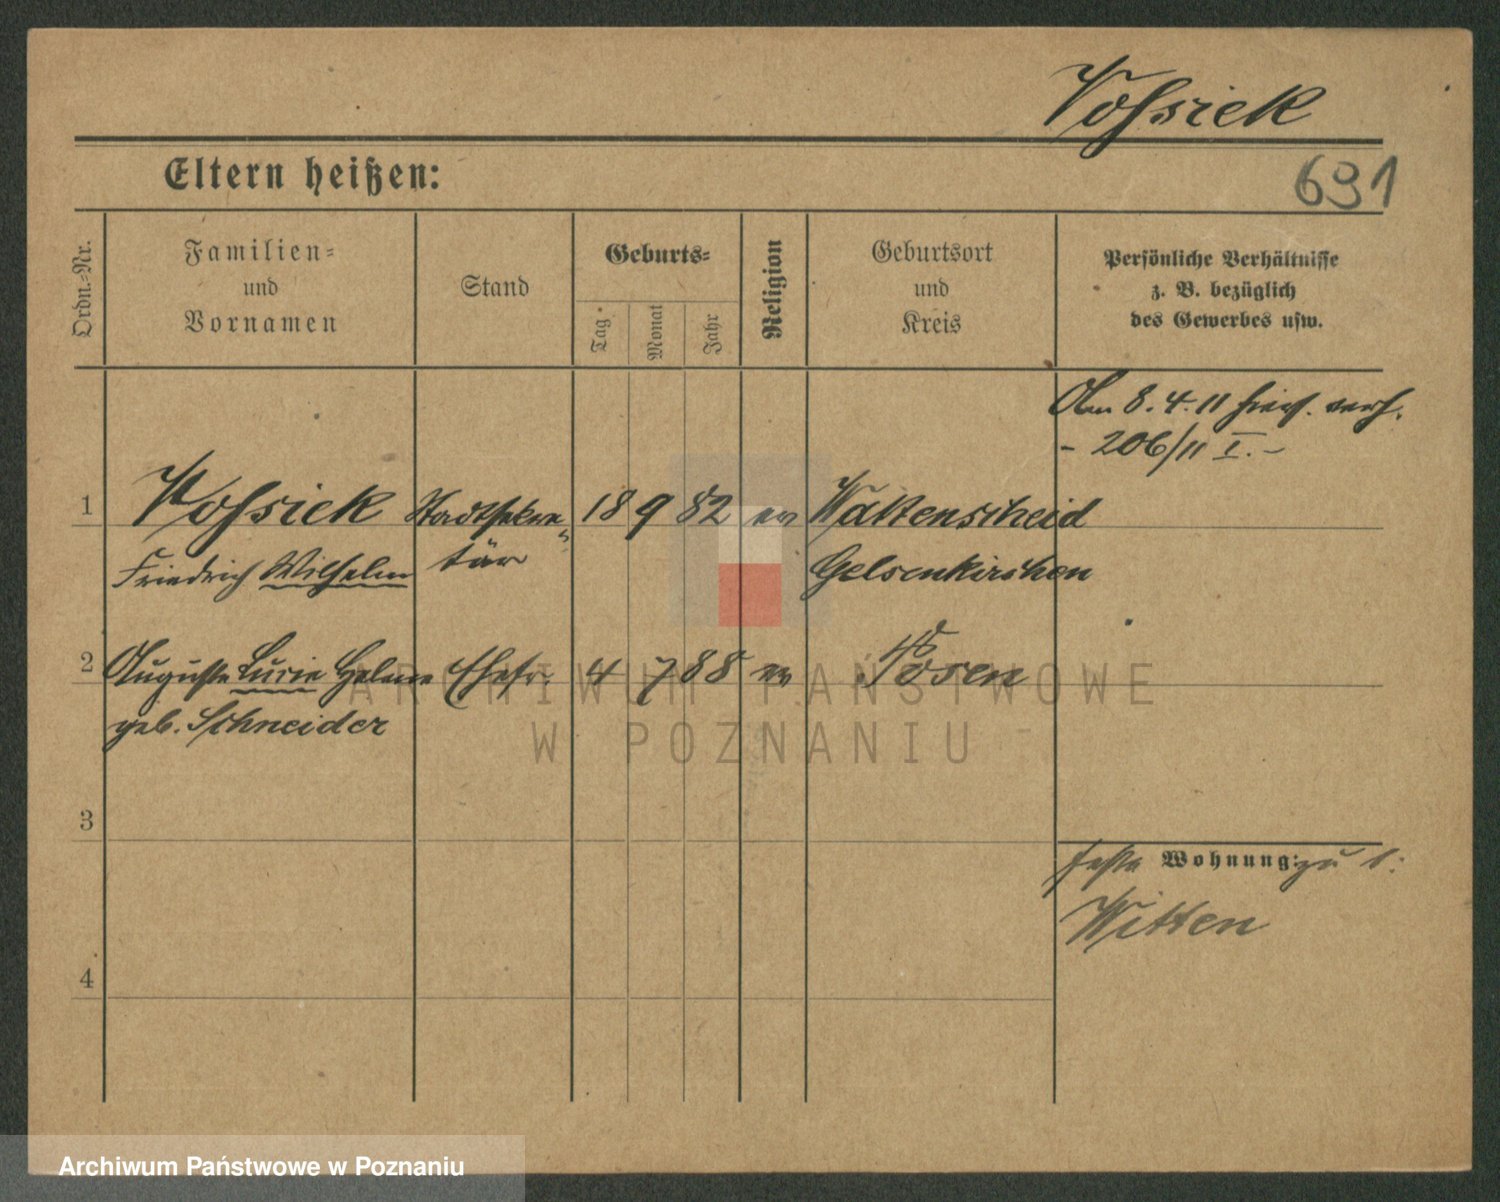 Vohsiek
Eltern heißen:
691
Ordn.-Nr.
Familien-
und
Vornamen
Stand
Geburts-
Tag
Monat
Jahr
Religion
Geburtsort
und
Kreis
Persönliche Verhältnisse
z. B. bezüglich
des Gewerbes usw.
Am 8.4.11 hies. verh.
- 206/11 I. -
1 Vohsiek Stadtsekre- 18 9 82 ev Wattenscheid
Friedrich Wilhelm tär Gelsenkirchen
2 Auguste Lucie Helene Ehefr. 4 7 88 ev Posen
geb. Schneider
3
feste Wohnung: zu 1:
Witten
4
ARCHIWUM PAŃSTWOWE
W POZNANIU
Archiwum Państwowe w Poznaniu